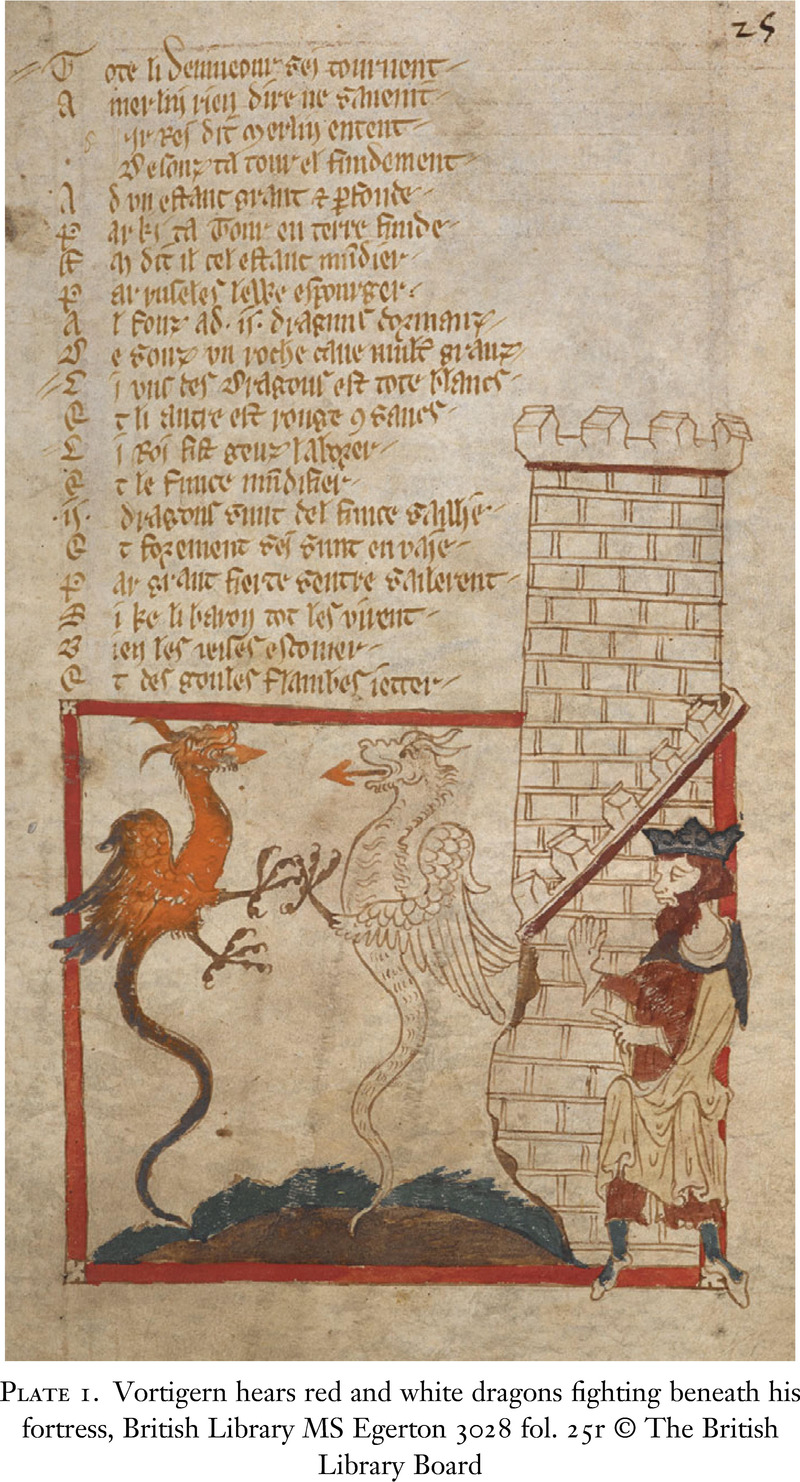 25
T ote li deuineour sei tournent
A merlin rien dire ne sauent
Sir Rei dit Merlin entent
Desouz ta tour el fundement
A d un estanc grant & pfonde
P ar ki ta Tour en terre funde
dit il cel estanc mūdier
P ar ruseles espurger
A l founz ad .ii. draguns dormanz
D e souz un roche caue mult granz
L i uns des Dragons est tote blancs
E t li autre est rouge 9 sancs
L i Roi fist genz laborer
E t le funce mūdifier
.ii. dragons sunt del funce saillie
E t forement sei sunt envaie
P ar grant fierte sentre sailerent
S i ke li baron tot les virent
B ien les escomer
E t des goules flambes ietter
PLATE 1. Vortigern hears red and white dragons fighting beneath his
fortress, British Library MS Egerton 3028 fol. 25r © The British
Library Board